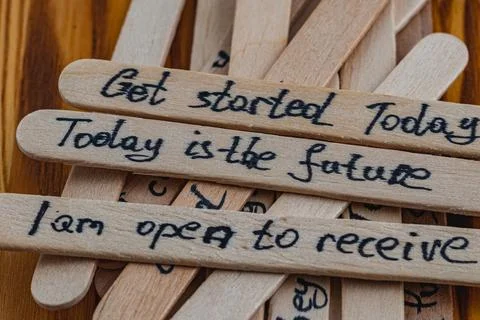 Get started Today
Today is the future
I am open to receive